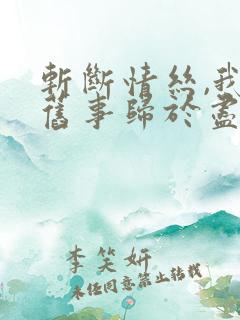 斬斷情絲,我
舊事歸於盡
李笑妍
未經同意禁止轉載